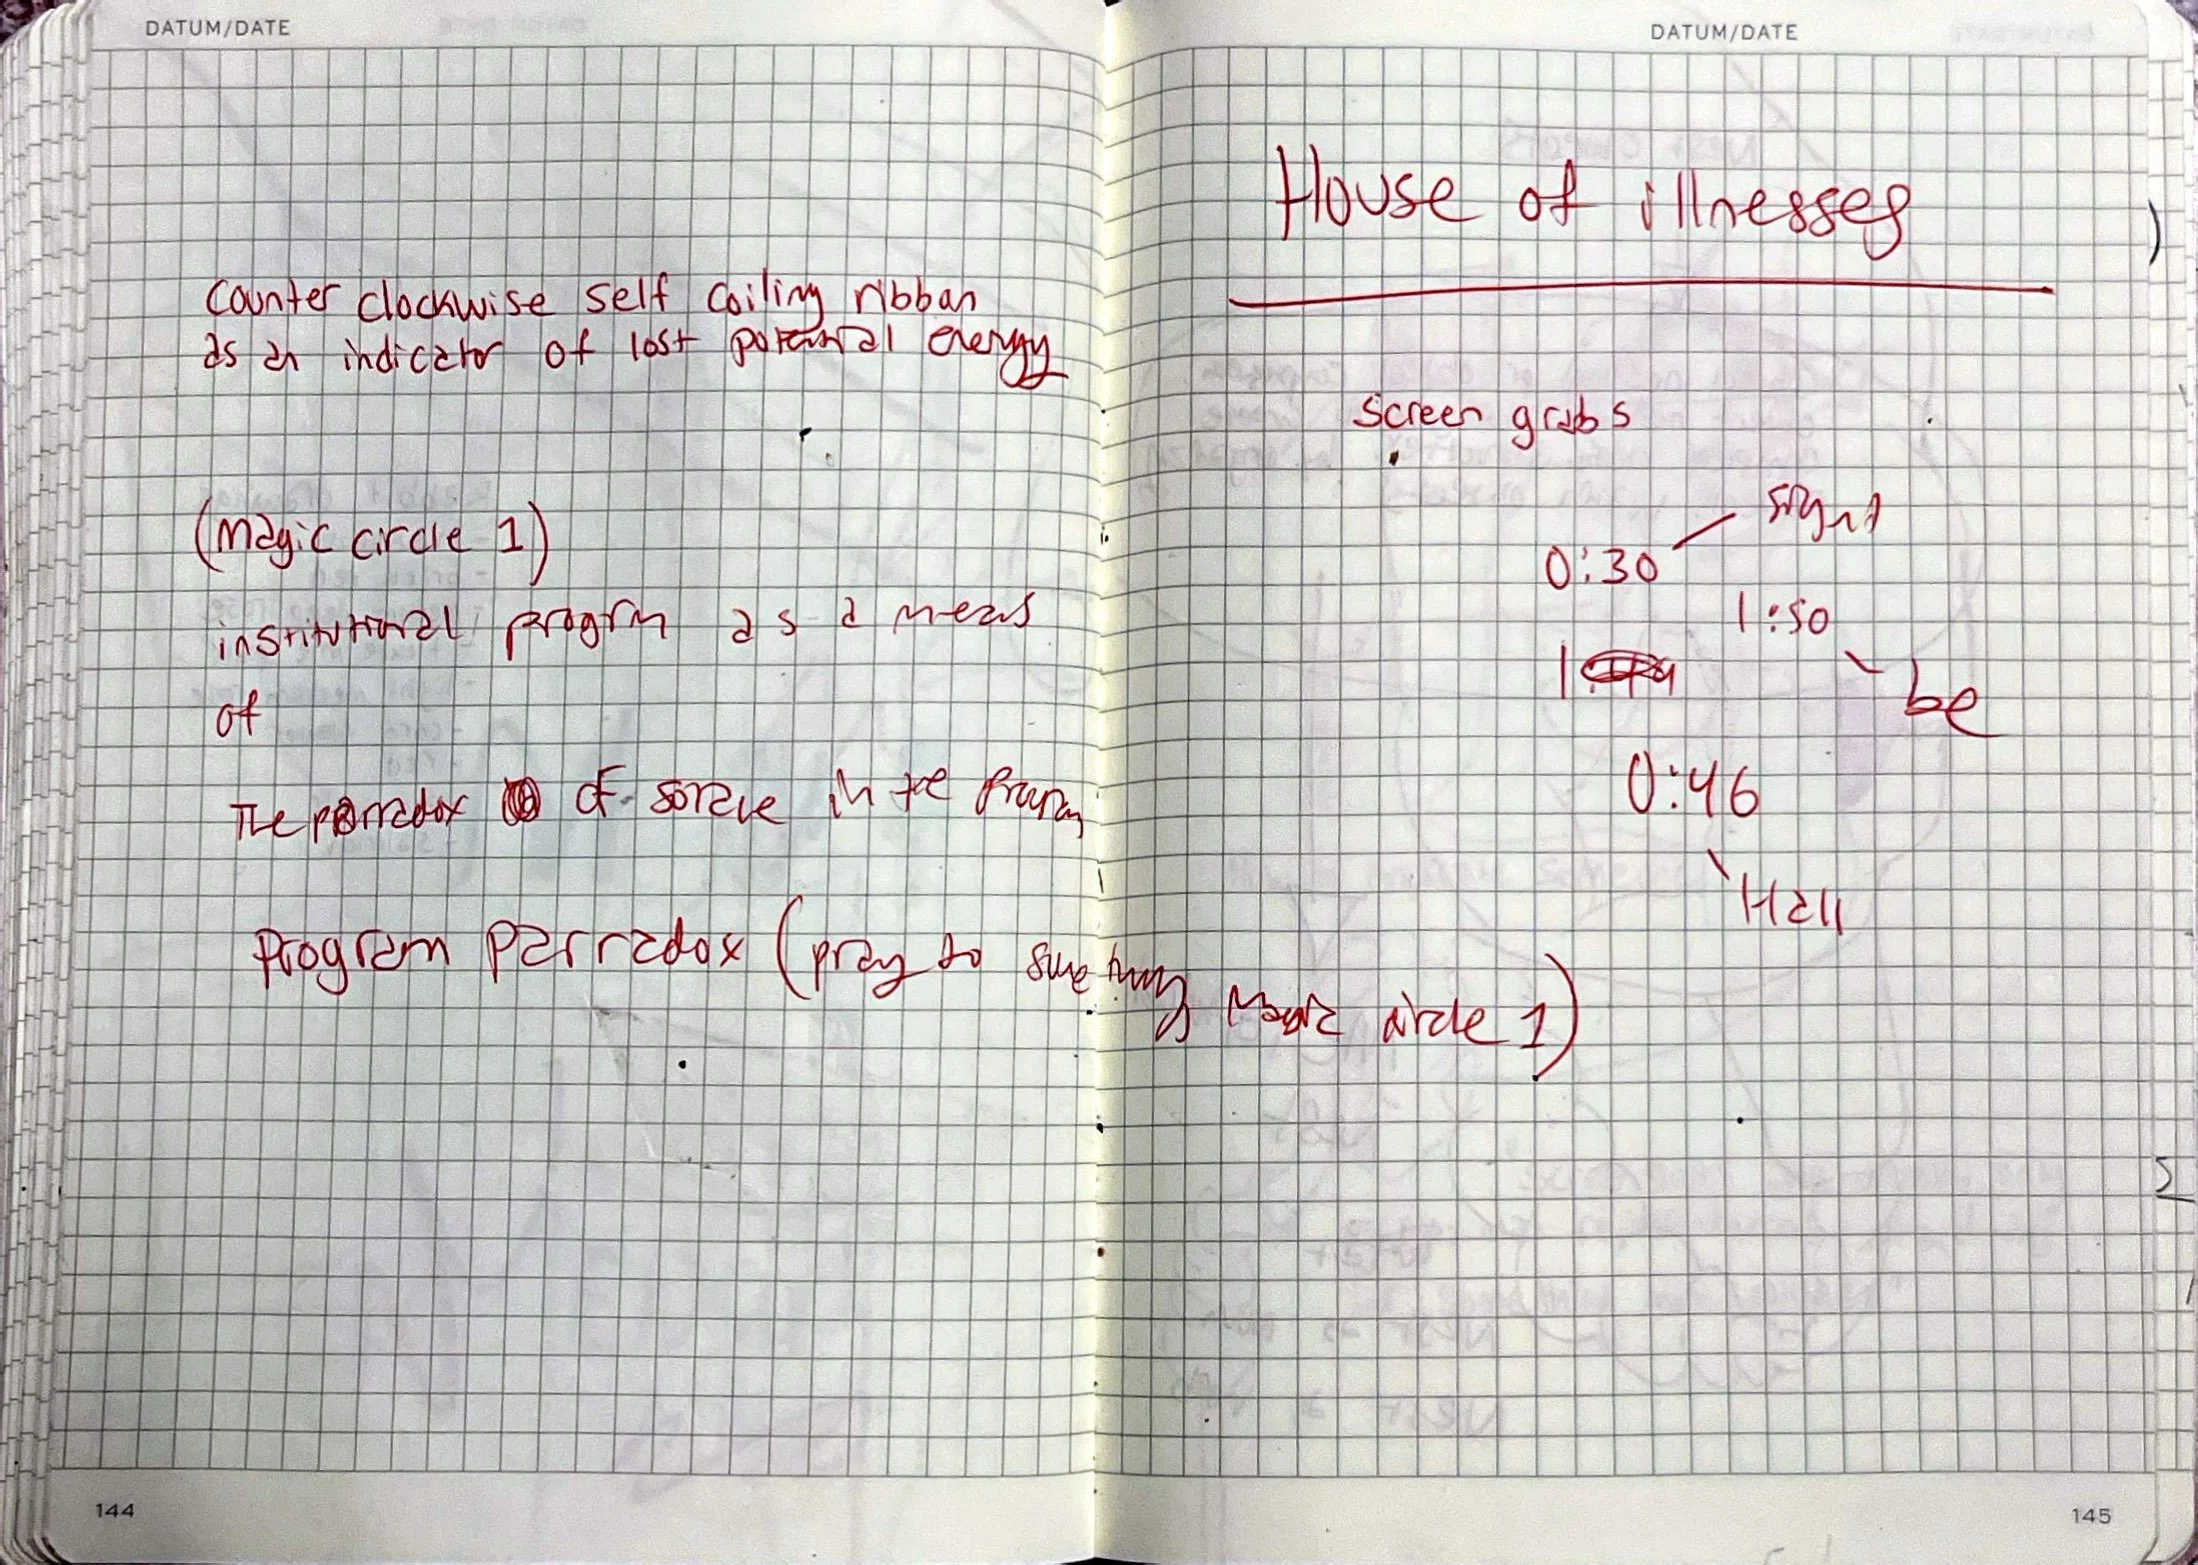 DATUM/DATE
Counter clockwise self coiling ribban
as an indicator of lost potential energy
(Magic circle 1)
institutional progrm as a means
of
The parradox of in the
Program Parradox (pray to something Magic circle 1)
144
DATUM/DATE
House of illnesses
Screen grabs
0:30
1:50
be
0:46
Hall
145